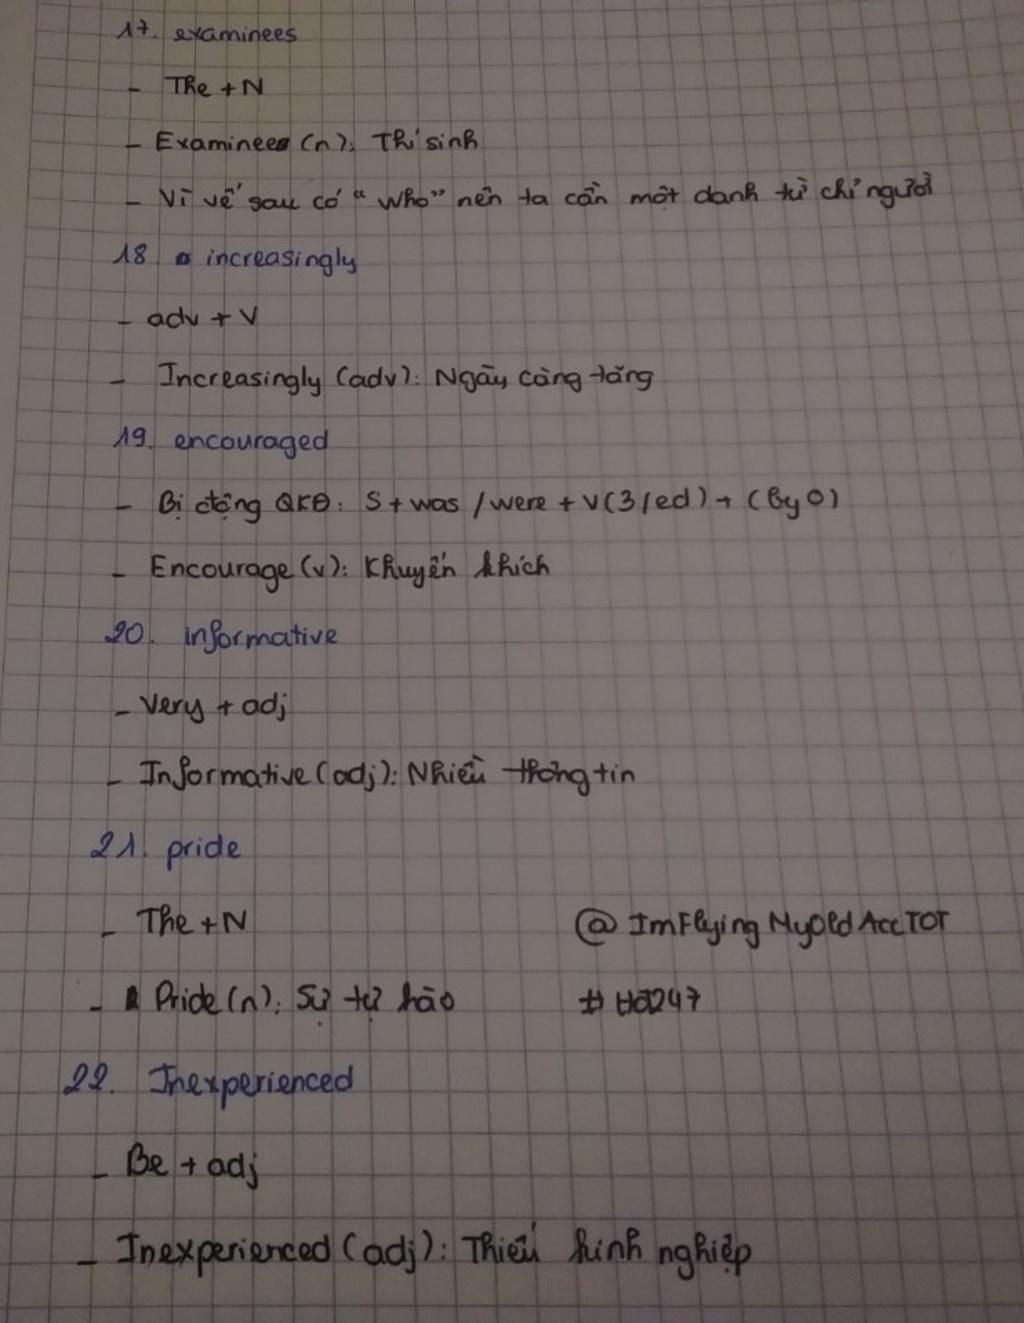 17. examinees
- The + N
- Examinees (n): Thí sinh
- Vì vế sau có "who" nên ta cần một danh từ chỉ người
18 increasingly
- adv + V
- Increasingly (adv): Ngày càng tăng
19. encouraged
- Bị động QKĐ: S + was / were + V(3/ed) + (by O)
- Encourage (v): Khuyến khích
20. informative
- Very + adj
- Informative (adj): Nhiều thông tin
21. pride
- The + N
@ ImFlying MyOldAccTOT
- Pride (n): Sự tự hào
22. Inexperienced
- Be + adj
- Inexperienced (adj): Thiếu kinh nghiệp